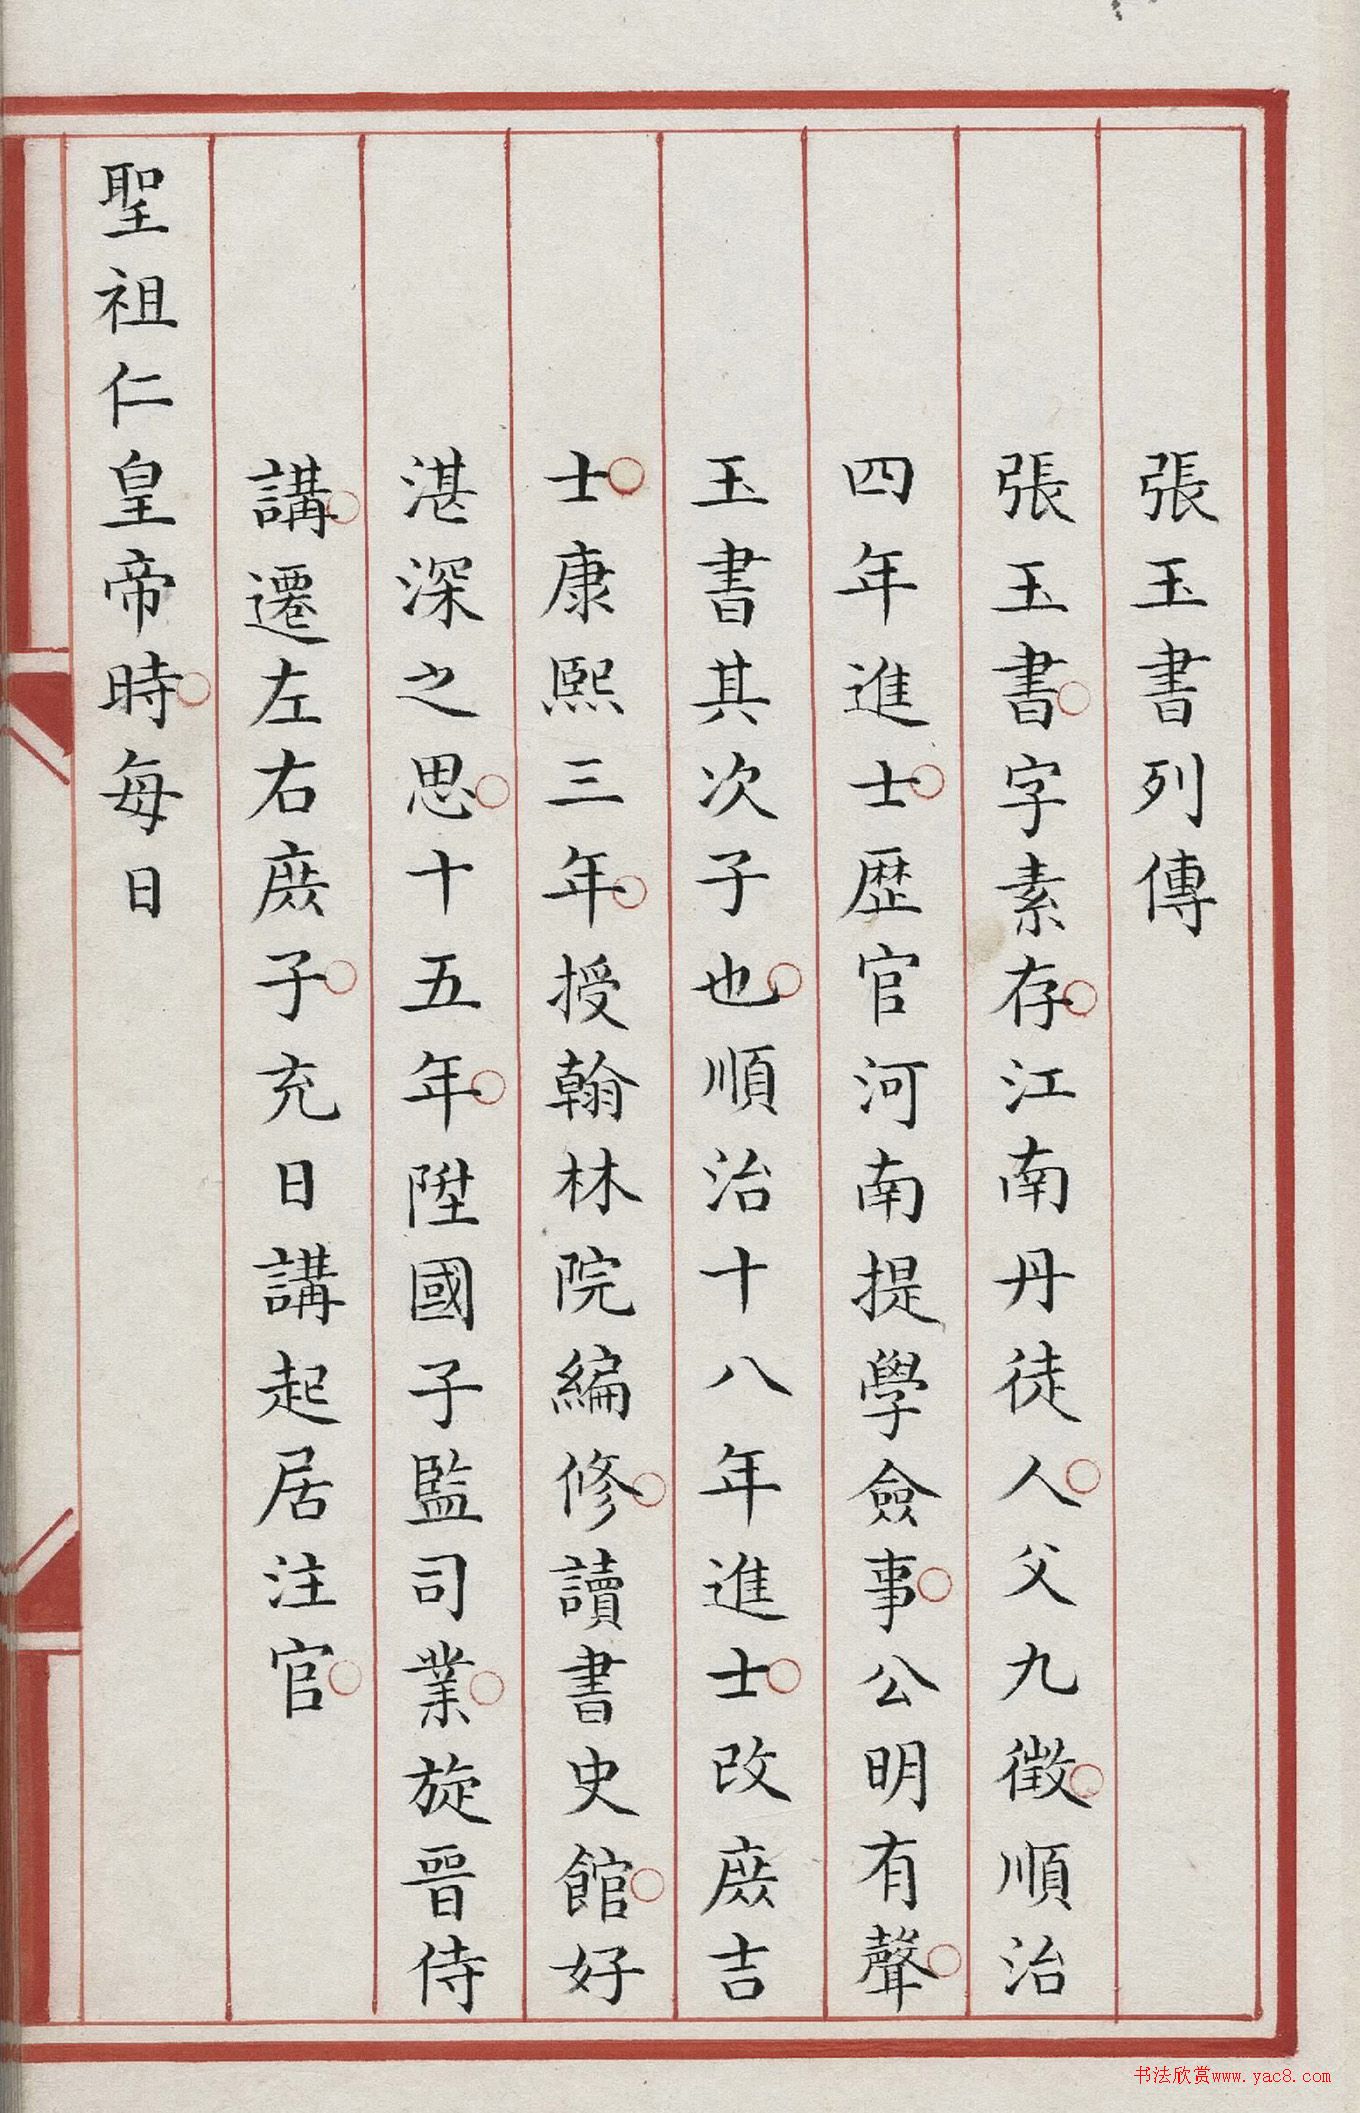 張玉書列傳
張玉書字素存江南丹徒人父九徵順治
四年進士歷官河南提學僉事公明有聲
玉書其次子也順治十八年進士改庶吉
士康熙三年授翰林院編修讀書史館好
湛深之思十五年陞國子監司業旋晉侍
講遷左右庶子充日講起居注官
聖祖仁皇帝時每日
书法欣赏www.yac8.com